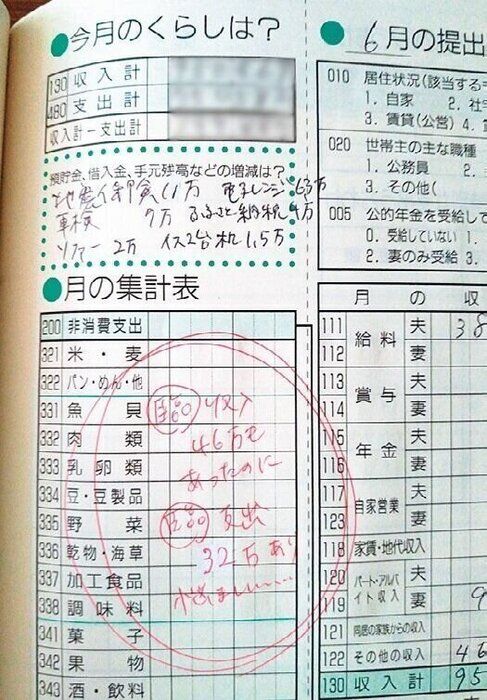 ●今月のくらしは?
130 収入計
480 支出計
収入計-支出計
預貯金、借入金、手元残高などの増減は?
地震保険 11万 電子レンジ 6.3万
車検 9万 ふるさと納税 4万
ソファー 2万 イス2台 机 1.5万
●月の集計表
200 非消費支出
321 米・麦
322 パン・めん・他
331 魚貝
332 肉類
333 乳卵類
334 豆・豆製品
335 野菜
336 乾物・海草
337 加工食品
338 調味料
341 菓子
342 果物
343 酒・飲料
臨 収入
46万も
あったのに
臨 支出
32万あり
悩ましい……
●6月の提出
010 居住状況(該当する
1. 自家 2. 社
3. 賃貸(公営) 4.
020 世帯主の主な職種
1. 公務員 2.
3. その他(
005 公的年金を受給して
0. 受給していない 1.
2. 妻のみ受給 3.
月の収
111 給料 夫 38
112 妻
113 賞与 夫
114 妻
115 年金 夫
116 妻
117 自家営業 夫
123 妻
118 家賃・地代収入
120 パート・アルバイト収入 夫
119 妻 9
121 同居の家族からの収入
122 その他の収入 46
130 収入計 95